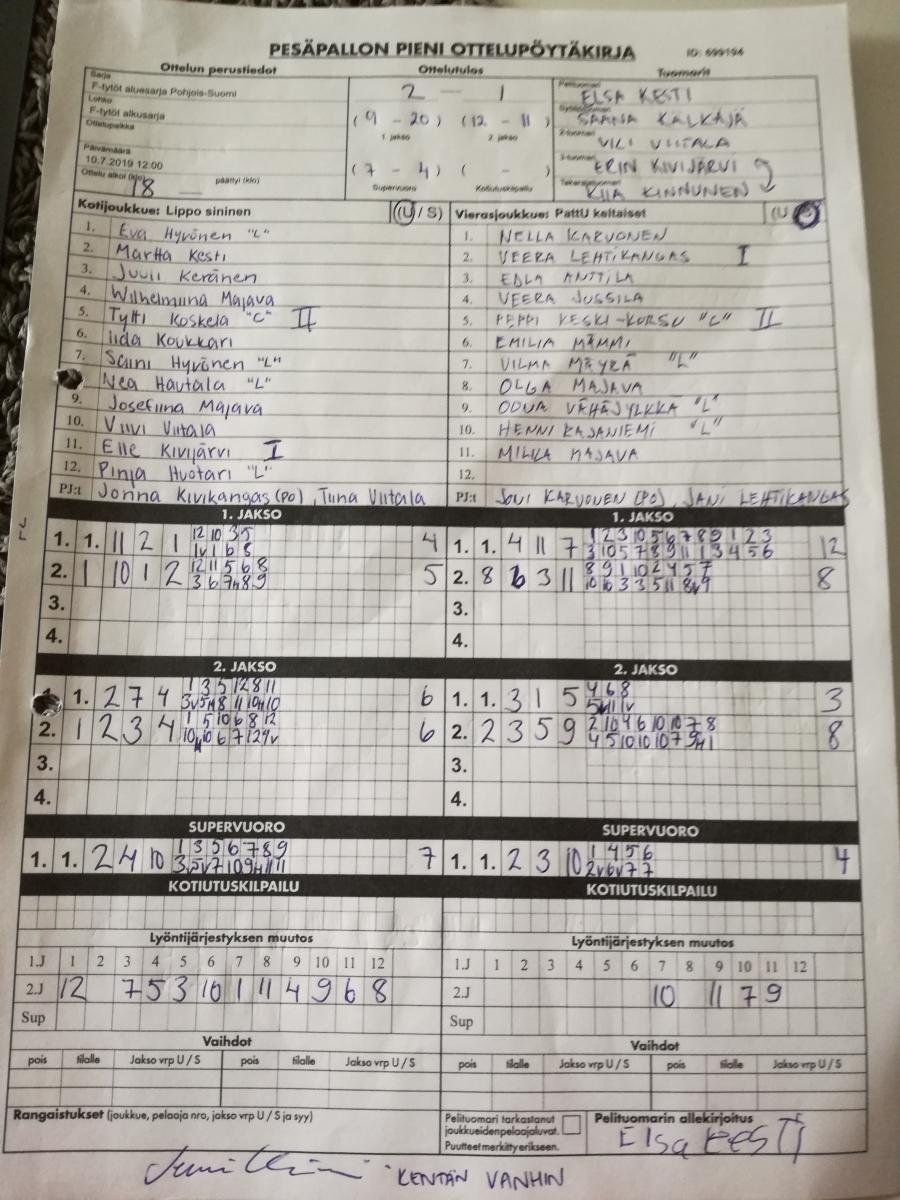 PESÄPALLON PIENI OTTELUPÖYTÄKIRJA ID: 699194
Ottelun perustiedot Ottelutulos Tuomarit
Sarja
F-tytöt aluesarja Pohjois-Suomi
Lohko
F-tytöt alkusarja
Ottelupaikka
Päivämäärä
10.7.2019 12:00
Ottelu alkoi (klo) 18 päättyi (klo)
2 — 1
(9 - 20) (12 - 11)
1. jakso 2. jakso
(7 - 4) ( - )
Supervuoro Kotiutuskilpailu
Pelituomari ELSA KESTI
SAANA KALKAJA
2-tuomari VILI VIITALA
3-tuomari ERIN KIVIJÄRVI
Takarajatuomari KIIA KINNUNEN
Kotijoukkue: Lippo sininen (U / S) Vierasjoukkue: PattU keltaiset (U
1. Eva Hyvönen "L" 1. NELLA KARVONEN
2. Martta Kesti 2. VEERA LEHTIKANGAS I
3. Juuli Keränen 3. EDLA ANTTILA
4. Wilhelmiina Majava 4. VEERA JUSSILA
5. Tytti Koskela "C" II 5. PEPPI KESKI-KORSU "C" II
6. Iida Koukkari 6. EMILIA MÄMMI
7. Saini Hyvönen "L" 7. VILMA MÄYRÄ "L"
Nea Hautala "L" 8. OLGA MAJAVA
9. Josefiina Majava 9. ODUA VÄHÄJYLKKÄ "L"
10. Viivi Viitala 10. HENNI KAJANIEMI "L"
11. Elle Kivijärvi I 11. MILKA MAJAVA
12. Pinja Huotari "L" 12.
PJ:t Jonna Kivikangas (PO), Tiina Viitala PJ:t JONI KARVONEN (PO), JANI LEHTIKANGAS
1. JAKSO 1. JAKSO
1. 1. 11 2 1 12 10 3 5 4 1. 1. 4 11 7 1 2 3 10 5 6 7 8 9 1 2 3 12
1v 1 6 8 3 10 5 7 8 9 11 1 3 4 5 6
2. 1 10 1 2 12 11 5 6 8 5 2. 8 6 3 11 8 9 1 10 2 4 5 7 8
3 6 7H 8 9 10 10 3 3 5 11 8v 9
3. 3.
4. 4.
2. JAKSO 2. JAKSO
1. 2 7 4 1 3 5 12 8 11 6 1. 1. 3 1 5 4 6 8 3
3v 5H 8 11 10H 10 5H 11 1v
2. 1 2 3 4 1 5 10 6 8 12 6 2. 2 3 5 9 2 10 4 6 10 10 7 8 8
10H 10 6 7 12 9v 4 5 10 10 10 7 9H 1
3. 3.
4. 4.
SUPERVUORO SUPERVUORO
1. 1. 2 4 10 1 3 5 6 7 8 9 7 1. 1. 2 3 10 1 4 5 6 4
3 5v 7 10 9H 11 11 2v 6v 7 7
KOTIUTUSKILPAILU KOTIUTUSKILPAILU
Lyöntijärjestyksen muutos Lyöntijärjestyksen muutos
1.J 1 2 3 4 5 6 7 8 9 10 11 12 1.J 1 2 3 4 5 6 7 8 9 10 11 12
2.J 12 7 5 3 10 1 11 4 9 6 8 2.J 10 11 7 9
Sup Sup
Vaihdot Vaihdot
pois tilalle Jakso vrp U / S pois tilalle Jakso vrp U / S pois tilalle Jakso vrp U / S pois tilalle Jakso vrp U / S
Rangaistukset (joukkue, pelaaja nro, jakso vrp U / S ja syy)
Pelituomari tarkastanut
joukkueidenpelaajaluvat.
Puutteet merkitty erikseen.
Pelituomarin allekirjoitus
Elsa KESTI
KENTÄN VANHIN